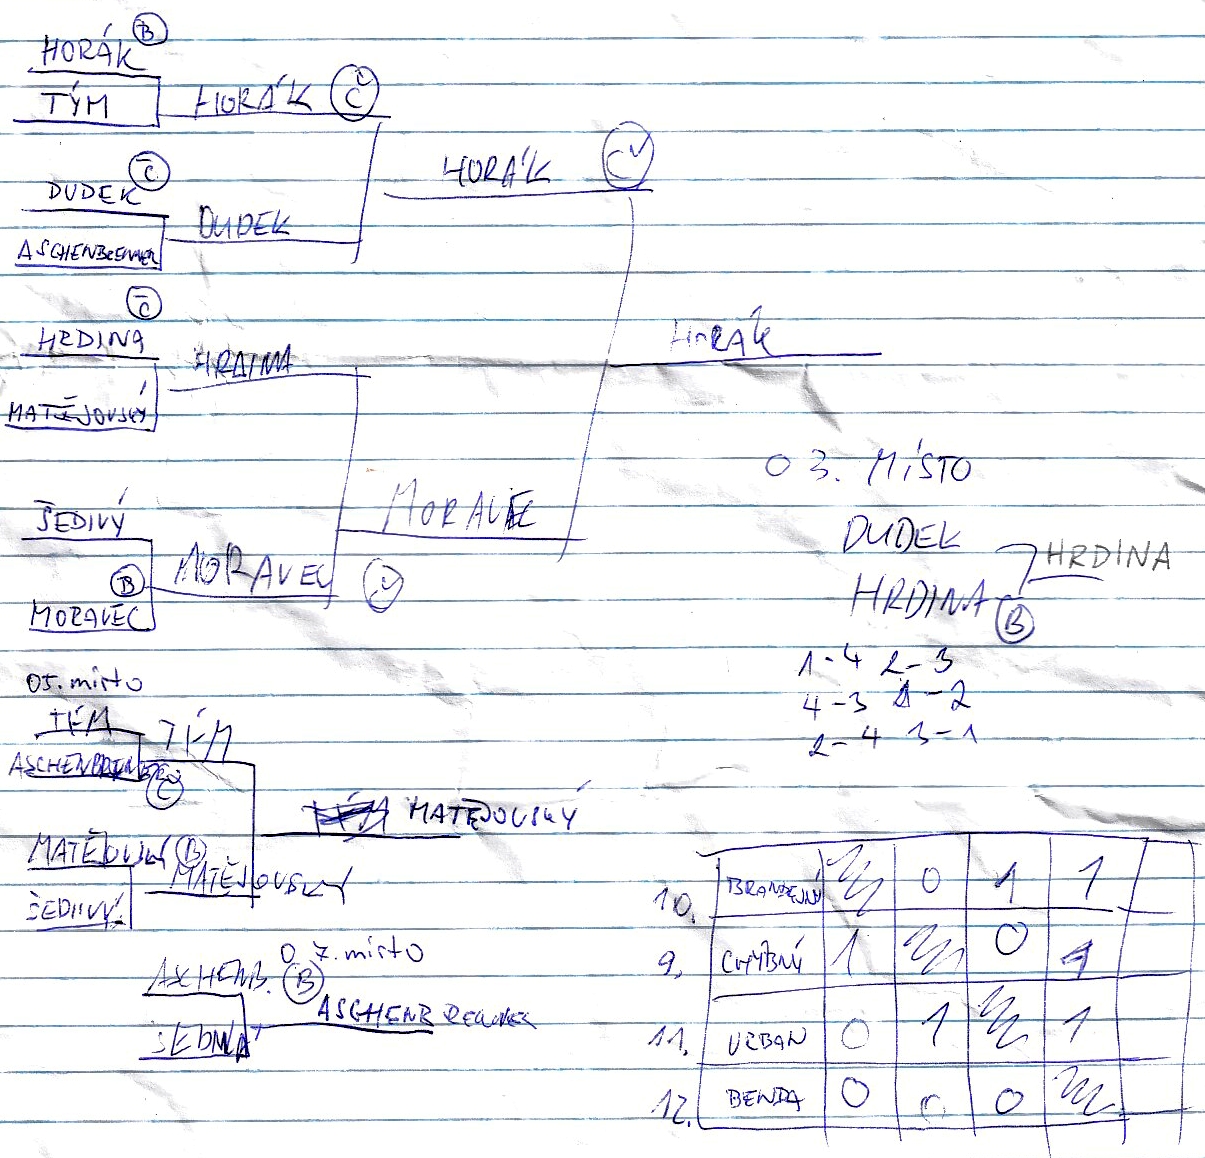 HORÁK B
TÝM
HORÁK Č
DUDEK Č
ASCHENBRENNER
DUDEK
HORÁK Č
HRDINA Č
MATĚJOVSKÝ
HRDINA
HORÁK
ŠEDIVÝ
B
MORAVEC
MORAVEC Č
MORAVEC
O 3. MÍSTO
DUDEK
HRDINA B
HRDINA
1-4 2-3
4-3 1-2
2-4 3-1
O 5. místo
TÉM
ASCHENBRENNER
Č
TÉM
MATĚJOVSKÝ B
ŠEDIVÝ
MATĚJOVSKÝ
MATĚJOVSKÝ
O 7. místo
ASCHENB. B
ŠEDIVÝ
ASCHENBRENNER
10. BRANDEJNÝ 0 1 1
9. CHYBNÝ 1 0 1
11. URBAN 0 1 1
12. BENDA 0 0 0